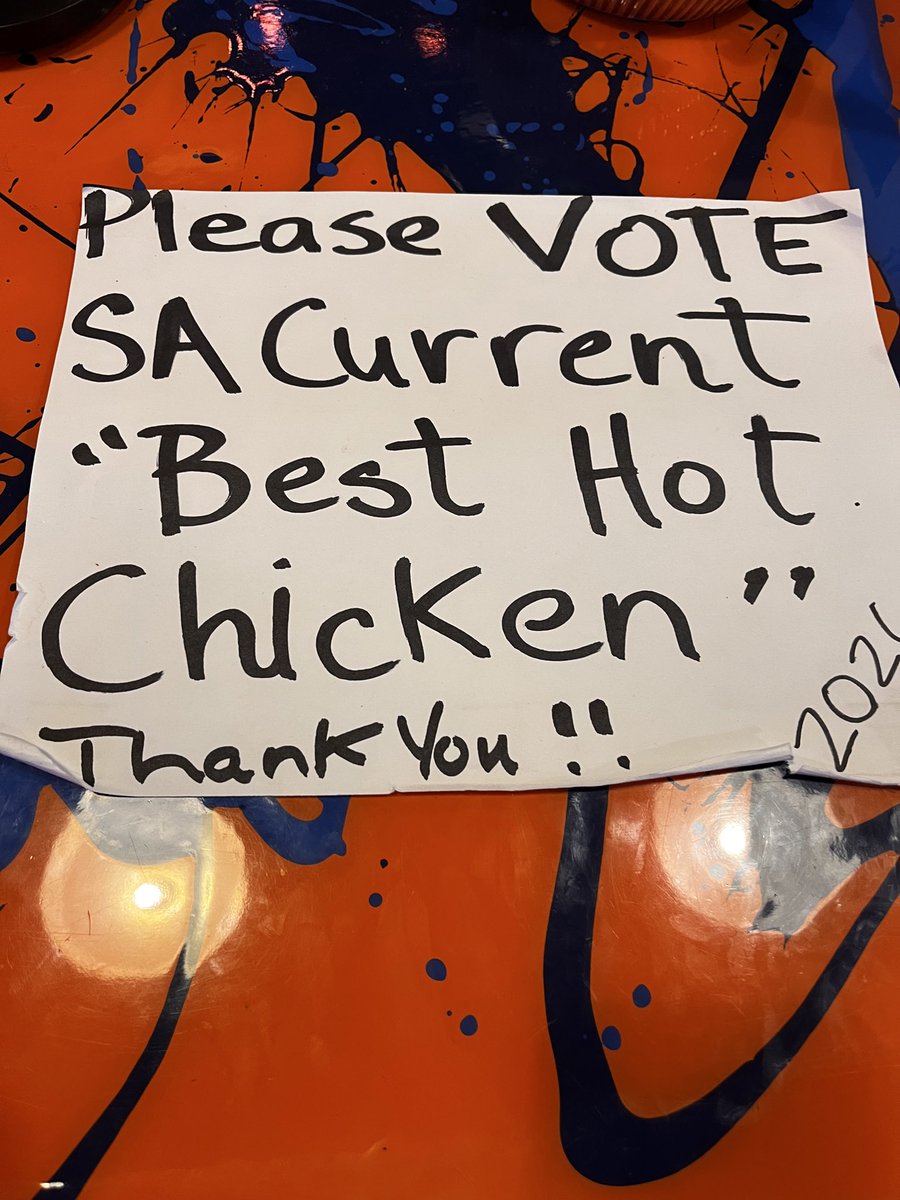 Please VOTE
SA Current
“Best Hot
Chicken”
Thank You!!
2021